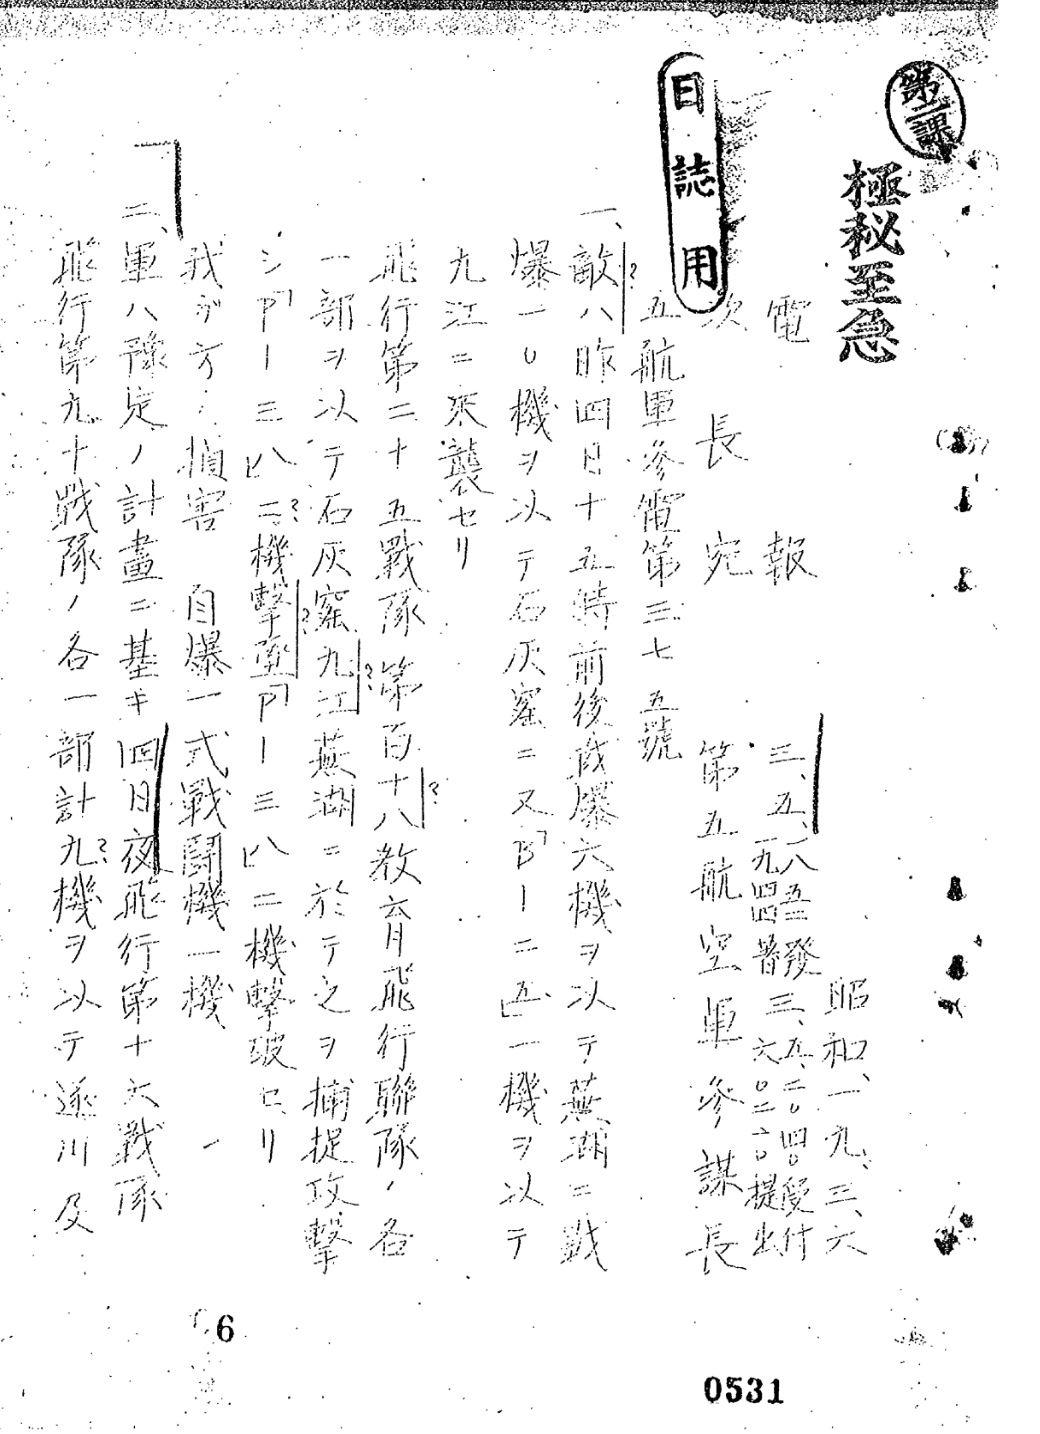 第二課
極秘至急
日誌用
電報
昭和一九、三、六
三、五、一八五二發 三、五、二〇四〇受付
一九四四著 六〇二二〇提出
次長宛 第五航空軍參謀長
五航軍參電第三七五號
一、敵ハ昨四日十五時前後戰爆六機ヲ以テ蕪湖ニ戰
爆一〇機ヲ以テ石灰窰ニ又「B」ー二五」一機ヲ以テ
九江ニ來襲セリ
飛行第二十五戰隊第百十八教育飛行聯隊ノ各
一部ヲ以テ石灰窰九江蕪湖ニ於テ之ヲ捕捉攻撃
シ「P」ー三八」二機擊墜「P」ー三八」二機擊破セリ
我ガ方ノ損害 自爆一式戰鬪機一機
二、軍ハ豫定ノ計畫ニ基キ四日夜飛行第十六戰隊
飛行第九十戰隊ノ各一部計九機ヲ以テ遂川及
6
0531